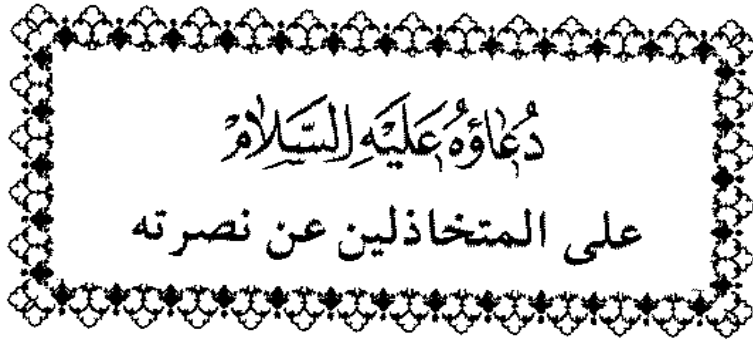 دُعَاؤهُ عَلَيْهِ السَّلَامُ
على المتخاذلين عن نصرته